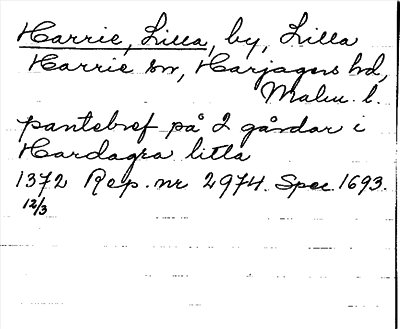 Harrie, Lilla, by, Lilla
Harrie sn, Harjagers hd,
Malm. l.
pantebref på 2 gårdar i
Hardagra litla
1372 Rep. nr 2974. Spec. 1693.
12/3